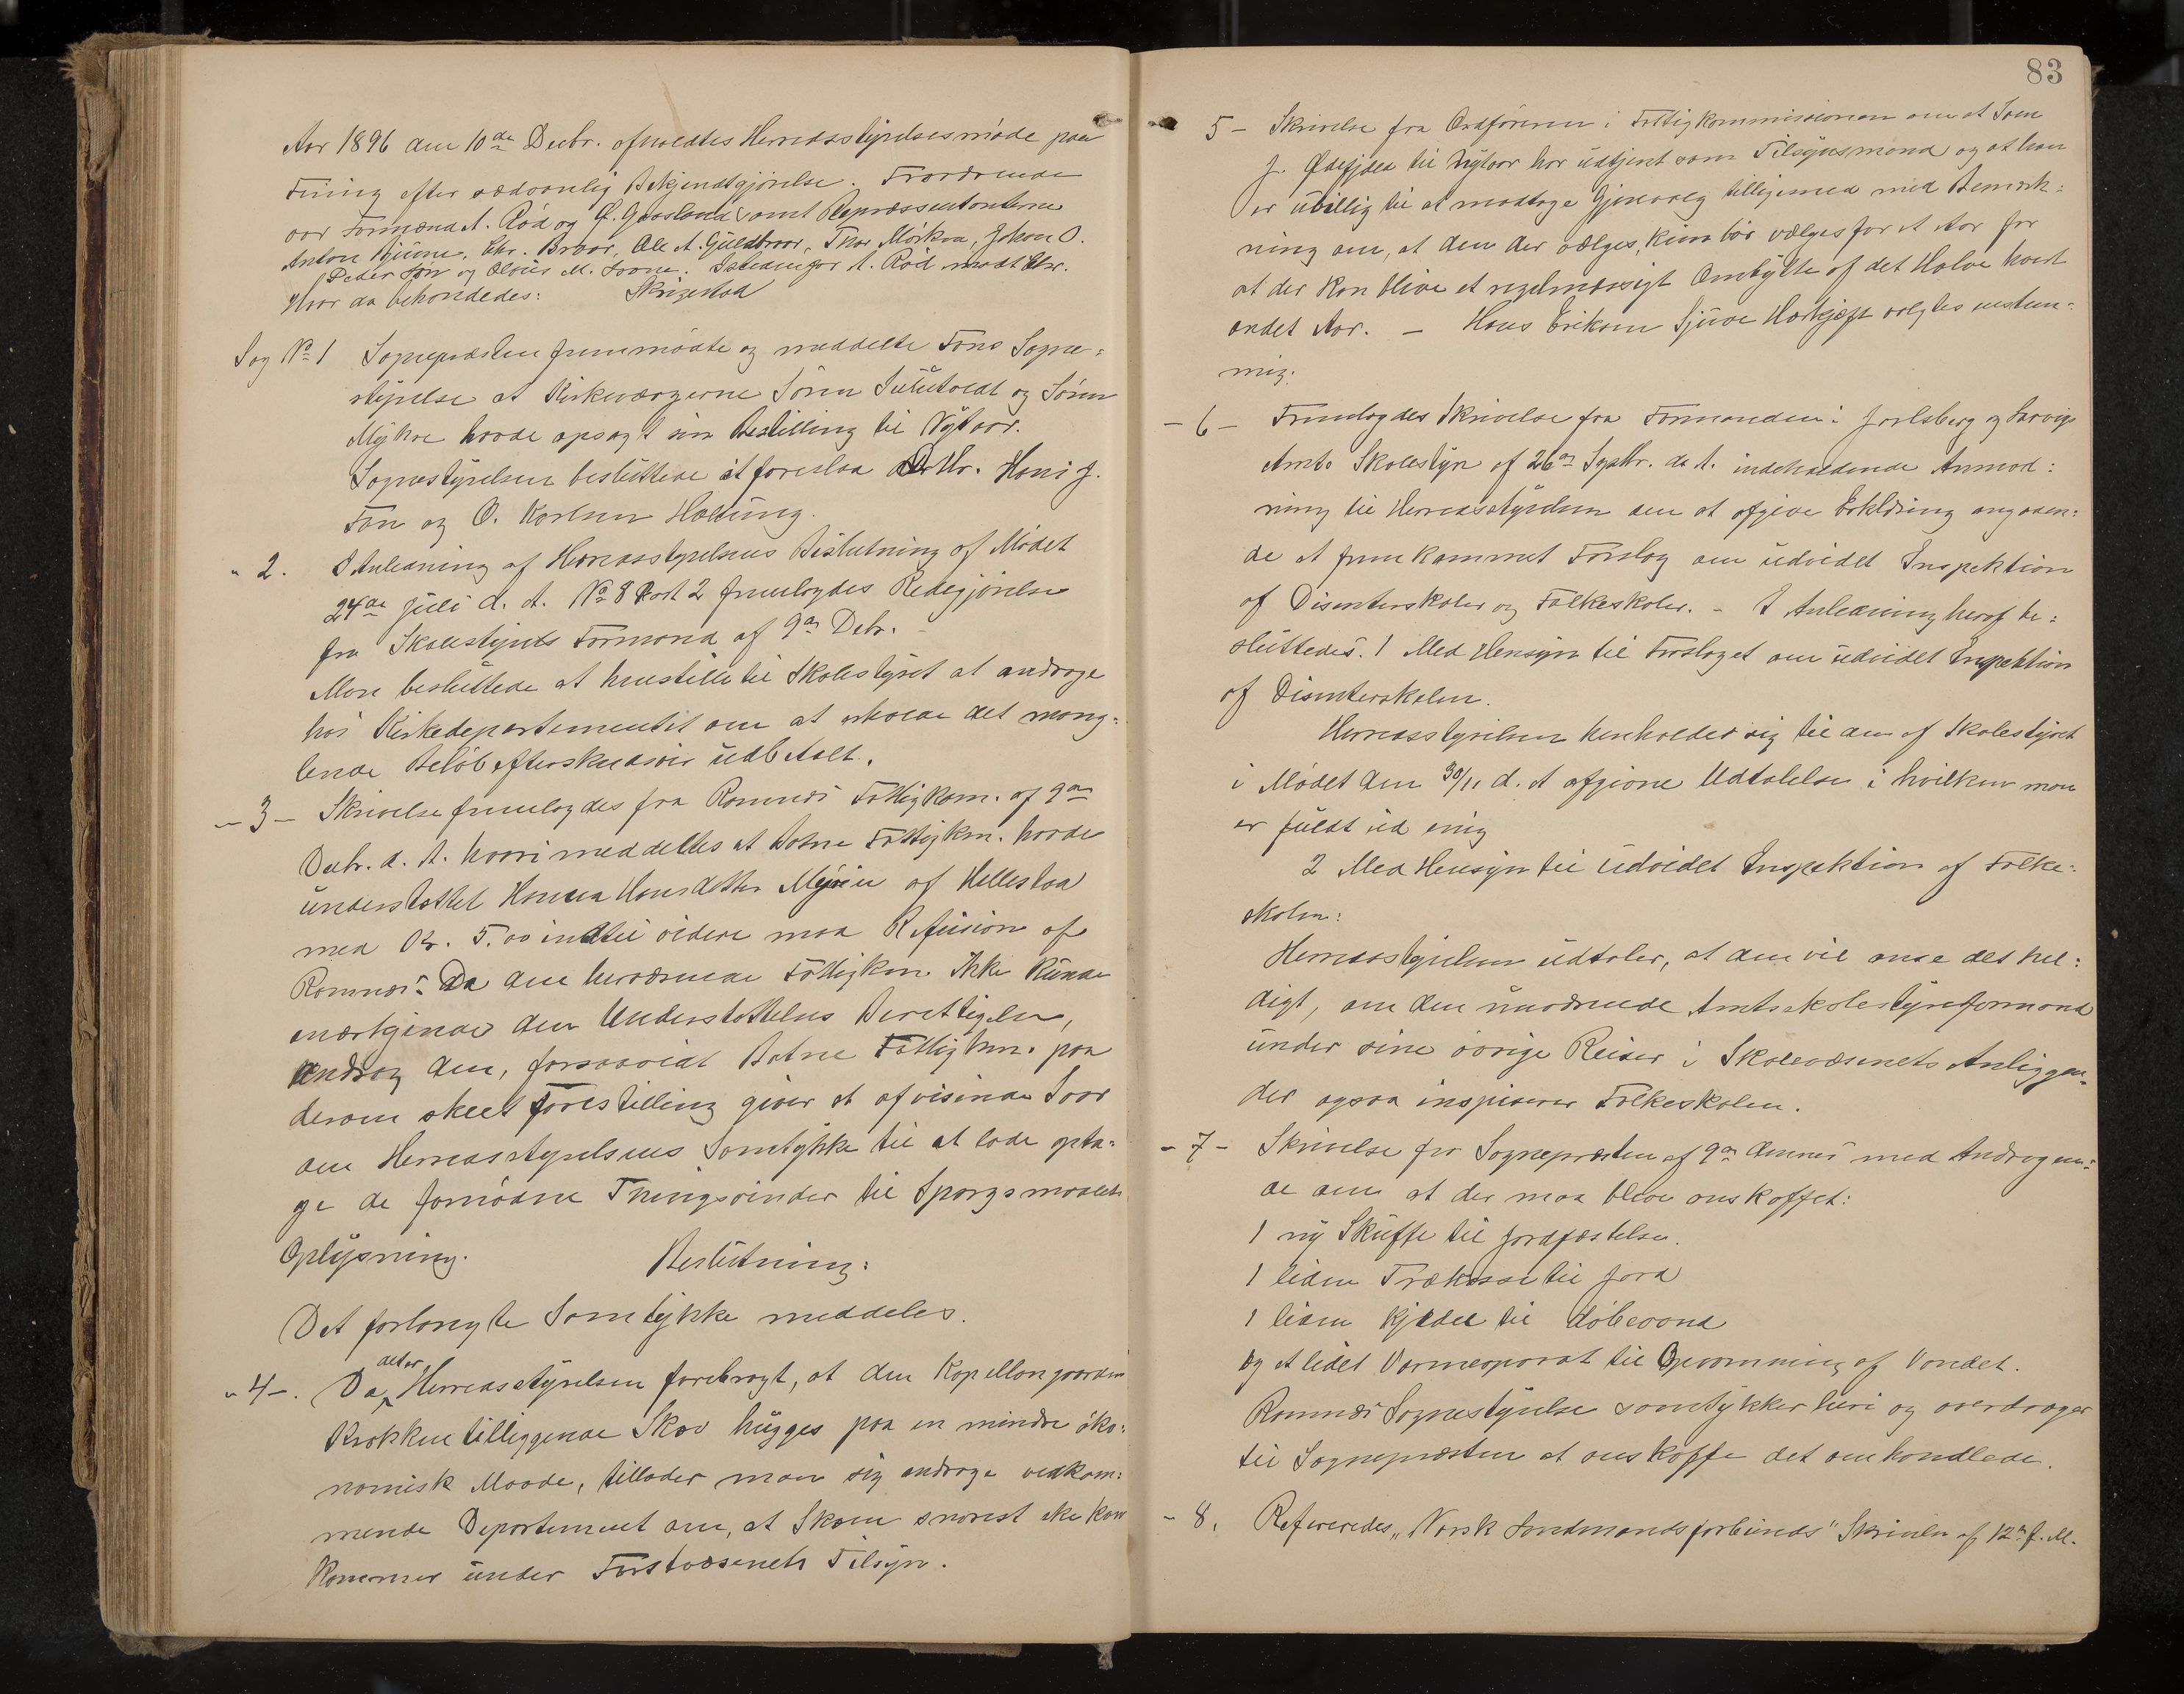 Aar 1896 den 10de Decbr. afholdtes Herredsstyrelsesmøde paa
Fuing efter sædvanlig Bekjendtgjørelse. Fraværende
var Formænd A. Rød og samt Repræsentanterne
Anton Chr. Bravr, Ole A. Guldbrar, Thor Mørken, Johan O.
Peder Føn og M. Istedenfor A. Rød mødt Chr.
Hvor da behandledes: Skrigestad
Sag No 1 Sognepræsten fremmødte og meddelte Føns Sogne=
styrelse at Kirkeværgerne Søren og Søren
Myhre havde opsagt sin Bestilling til Nytaar.
Sognestyrelsen besluttede at foreslaa Hr. Hans J.
Føn og O. Karlsen
" 2. I Anledning af Herredsstyrelsens Beslutning af Mødet
24de Juli d. A. No 8 Post 2 fremlagdes Redegjørelse
fra Skolestyrets Formand af 9de Debr. -
Man besluttede at henstille til Skolestyret at andrage
hos Kirkedepartementet om at erholde det mang=
lende Beløb efterskudsvis udbetalt.
- 3 - Skrivelse fremlagdes fra Ramnæs Fattigkom. af 9de
Decbr. d. A. hvori meddeltes at Botne Fattigkm. havde
understøttet Hanna Hansdatter af Hillestad
med Kr. 5.00 indtil videre mod Refusion af
Ramnæs. Da den herværende Fattigkm. ikke kunde
anerkjende den Understøttelses Berettigelse,
androg den, forsaavidt Botne Fattigkm. paa
derom skeet Forestilling giver et afvisende Svar
om Herredsstyrelsens Samtykke til at lade opta=
ge de fornødne Thingsvinder til Spørgsmaalets
Oplysning. Beslutning:
Det forlangte Samtykke meddeles.
" 4 -. Da det er Herredsstyrelsen forebragt, at den Kapellangaarden
Krokken tilliggende Skov hugges paa en mindre øko=
nomisk Maade, tillader man sig andrage vedkom=
mende Departement om, at Skoven snarest
kommer under Forstvæsenets Tilsyn.
83
5 - Skrivelse fra Ordføreren i Fattigkommissionen om at Iver
J. til Nytaar har udtjent som Tilsynsmand og at han
er uvillig til at modtage Gjenvalg tilligemed med Bemærk=
ning om, at den der vælges, kun bør vælges for et Aar for
at der kan blive et regelmæssigt Ombytte af det Halve hvert
andet Aar. - Hans Eriksen valgtes enstem=
mig.
- 6 - Fremlagdes Skrivelse fra Formanden i Jarlsberg og Larvigs
Amts Skolestyre af 26de Septbr. d. A. indeholdende Anmod=
ning til Herredsstyrelsen om at afgive Erklæring angaaen=
de et fremkommet Forslag om udvidet Inspektion
af Disenterskoler og Folkeskoler. - I Anledning heraf be=
sluttedes: 1 Med Hensyn til Forslaget om udvidet Inspektion
af Disenterskolen.
Herredsstyrelsen henholder sig til den af Skolestyret
i Mødet den 30/11 d. A afgivne Udtalelse i hvilken man
er fuldt ud enig
2 Med Hensyn til udvidet Inspektion af Folke=
skolen:
Herredsstyrelsen udtaler, at den vil anse det hel=
digt, om den nuværende Amtsskolestyreformand
under sine øvrige Reiser i Skolevæsenets Anliggen=
der ogsaa inspiserer Folkeskolen.
- 7 - Skrivelse fra Sognepræsten af 9de dennes med Andragen=
de om at der maa blive anskaffet:
1 ny Skuffe til Jordfæstelse.
1 liden Trækasse til Jord
1 liden Kjedel til Døbevand
og et lidet Varmeaparat til Opvarmning af Vandet.
Ramnæs Sognestyrelse samtykker heri og overdrager
til Sognepræsten at anskaffe det omhandlede.
- 8. Refereredes "Norsk Landmandsforbunds" Skrivelse af 12te f. M.